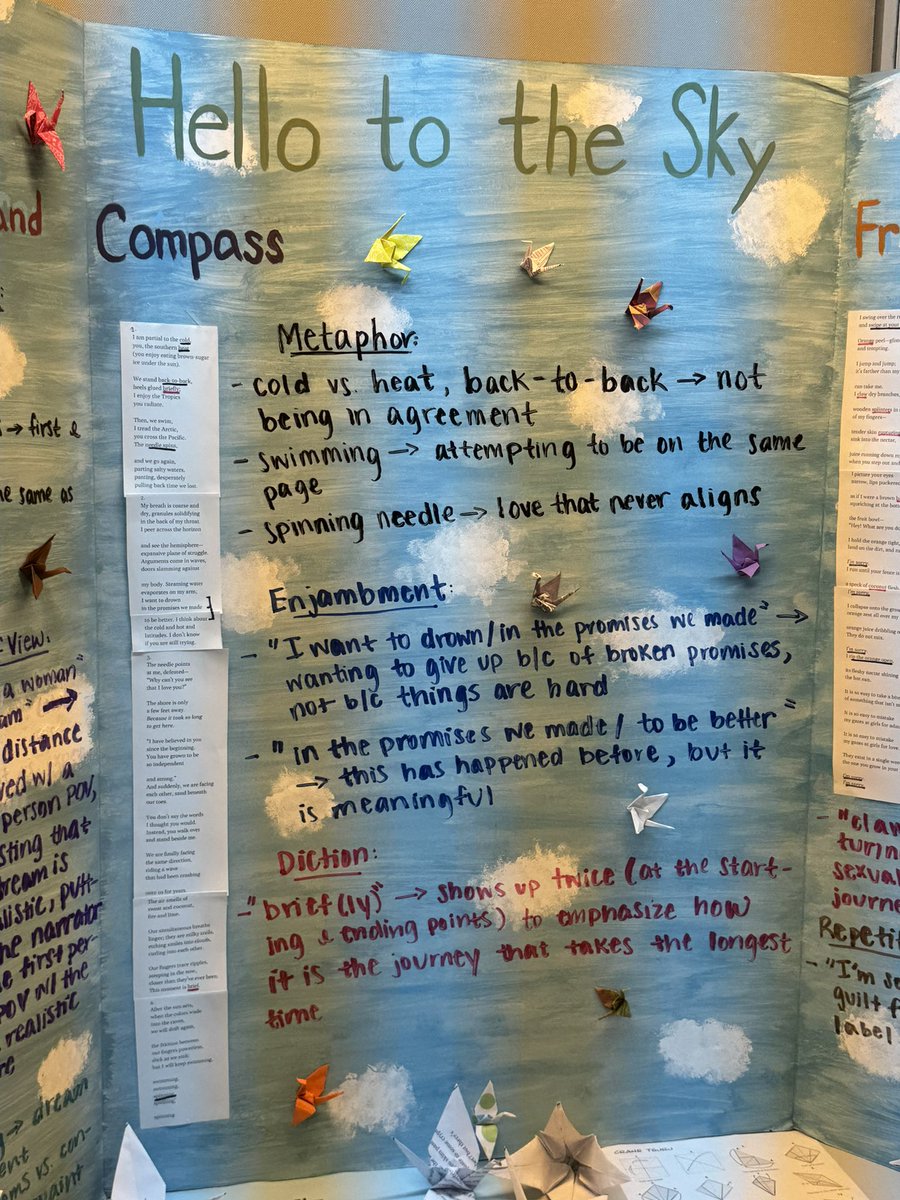 Hello to the Sky
and
Compass
Fr
→ first &
same as
View:
a woman"
distance
w/ a
person POV,
sting that
is
alistic, putt-
narrator
first per-
POV w/ the
realistic
→ dream
vs. con-
1.
I am partial to the cold
you, the southern heat
(you enjoy eating brown sugar
ice under the sun).
We stand back-to-back,
heels glued briefly;
I enjoy the Tropics
you radiate.
Then, we swim,
I tread the Arctic,
you cross the Pacific.
The needle spins,
and we go again,
parting salty waters,
panting, desperately
pulling back time we lost.
2.
My breath is coarse and
dry, granules solidifying
in the back of my throat.
I peer across the horizon
and see the hemisphere—
expansive plane of struggle.
Arguments come in waves,
doors slamming against
my body. Steaming water
evaporates on my arms;
I want to drown
in the promises we made
to be better. I think about
the cold and hot and
latitudes. I don't know
if you are still trying.
3.
The needle points
at me, defeated—
"Why can't you see
that I love you?"
The shore is only
a few feet away.
Because it took so long
to get here.
"I have believed in you
since the beginning.
You have grown to be
so independent
and strong."
And suddenly, we are facing
each other, sand beneath
our toes.
You don't say the words
I thought you would.
Instead, you walk over
and stand beside me.
We are finally facing
the same direction,
riding a wave
that had been crushing
over us for years.
The air smells of
sweat and coconut,
fire and lime.
Our simultaneous breaths
linger; they are milky trails,
etching smiles into clouds,
curling into each other.
Our fingers trace ripples,
steeping in the now,
closer than they've ever been.
This moment is brief.
4.
After the sun sets,
when the colors wade
into the raven,
we will drift again,
the friction between
our fingers powerless,
slick as we sink;
but I will keep swimming,
swimming,
swimming,
spinning,
spinning
Metaphor:
- cold vs. heat, back-to-back → not
being in agreement
- swimming → attempting to be on the same
page
- spinning needle → love that never aligns
Enjambment:
- "I want to drown/in the promises we made" →
wanting to give up b/c of broken promises,
not b/c things are hard
- "in the promises we made/ to be better"
→ this has happened before, but it
is meaningful
Diction:
- "brief(ly)" → shows up twice (at the start-
ing & ending points) to emphasize how
it is the journey that takes the longest
time
I swing over the
and swipe at your
Orange peel—
and tempting.
I jump and jump;
it's farther than my
can take me.
I claw dry branches,
wooden splinters in
of my fingers—
tender skin
sink into the nectar,
juice running down my
when you step out and
I picture your eyes
narrow, lips puckered
as if I were a brown
squelching at the bottom
the fruit bowl—
"Hey! What are you
I hold the orange tight,
land on the dirt, and
I'm sorry
I run until your fence is
a speck of coconut
I'm sorry.
I collapse onto the
orange nest all over my
orange juice dribbling
They do not mix.
I'm sorry
I rip the orange open,
its fleshy nectar shining
the hot sun.
It is so easy to take a bite
of something that isn't
It is so easy to mistake
my gazes at girls for
It is so easy to mistake
my gazes at girls for love
They exist in a single
the one you grow in your
I'm sorry
I'm sorry.
- "claw
turn
sexual
journe
Repetit
- "I'm so
guilt f
label
CRANE